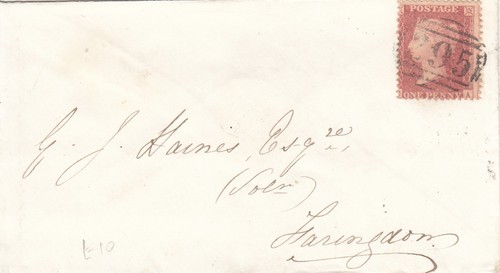 POSTAGE
95
ONE PENNY
G. J. Haines, Esqre,
(Solr)
Faringdon
£10